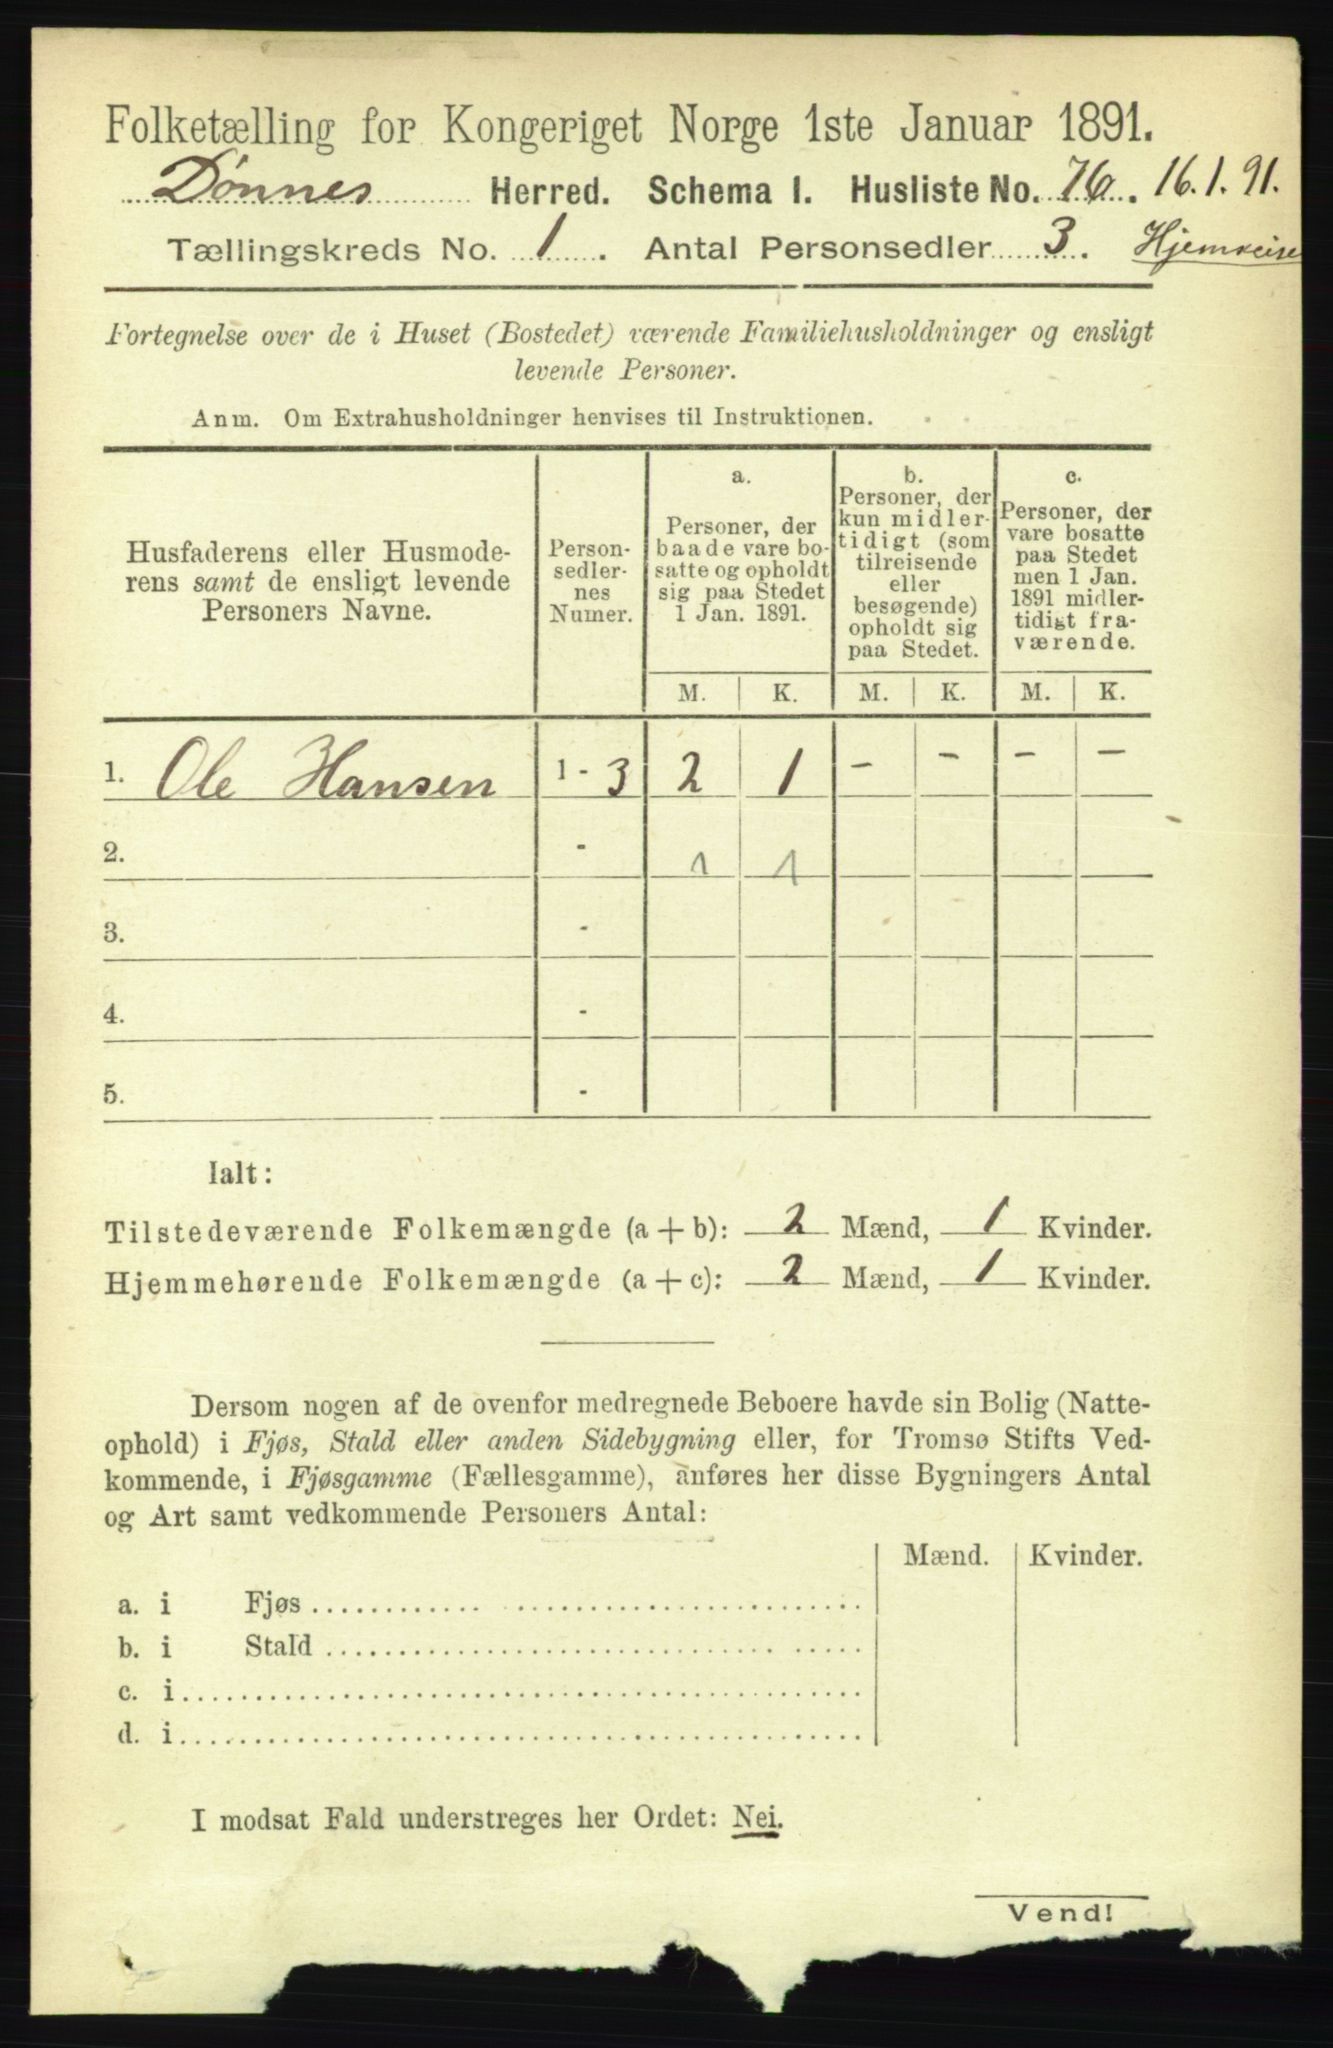 Folketælling for Kongeriget Norge 1ste Januar 1891.
Dønnes Herred. Schema I. Husliste No. 76. 16.1.91.
Tællingskreds No. 1. Antal Personsedler 3.
Fortegnelse over de i Huset (Bostedet) værende Familiehusholdninger og ensligt
levende Personer.
Anm. Om Extrahusholdninger henvises til Instruktionen.
Husfaderens eller Husmode-
rens samt de ensligt levende
Personers Navne.
Person-
sedler-
nes
Numer.
a.
Personer, der
baade vare bo-
satte og opholdt
sig paa Stedet
1 Jan. 1891.
b.
Personer, der
kun midler-
tidigt (som
tilreisende
eller
besøgende)
opholdt sig
paa Stedet.
c.
Personer, der
vare bosatte
paa Stedet
men 1 Jan.
1891 midler-
tidigt fra-
værende.
M. K. M. K. M. K.
1. Ole Hansen 1 - 3 2 1 - - - -
2. - 1 1
3. -
4. -
5. -
Ialt:
Tilstedeværende Folkemængde (a + b): 2 Mænd, 1 Kvinder.
Hjemmehørende Folkemængde (a + c): 2 Mænd, 1 Kvinder.
Dersom nogen af de ovenfor medregnede Beboere havde sin Bolig (Natte-
ophold) i Fjøs, Stald eller anden Sidebygning eller, for Tromsø Stifts Ved-
kommende, i Fjøsgamme (Fællesgamme), anføres her disse Bygningers Antal
og Art samt vedkommende Personers Antal:
Mænd. Kvinder.
a. i Fjøs
b. i Stald
c. i
d. i
I modsat Fald understreges her Ordet: Nei.
Vend!